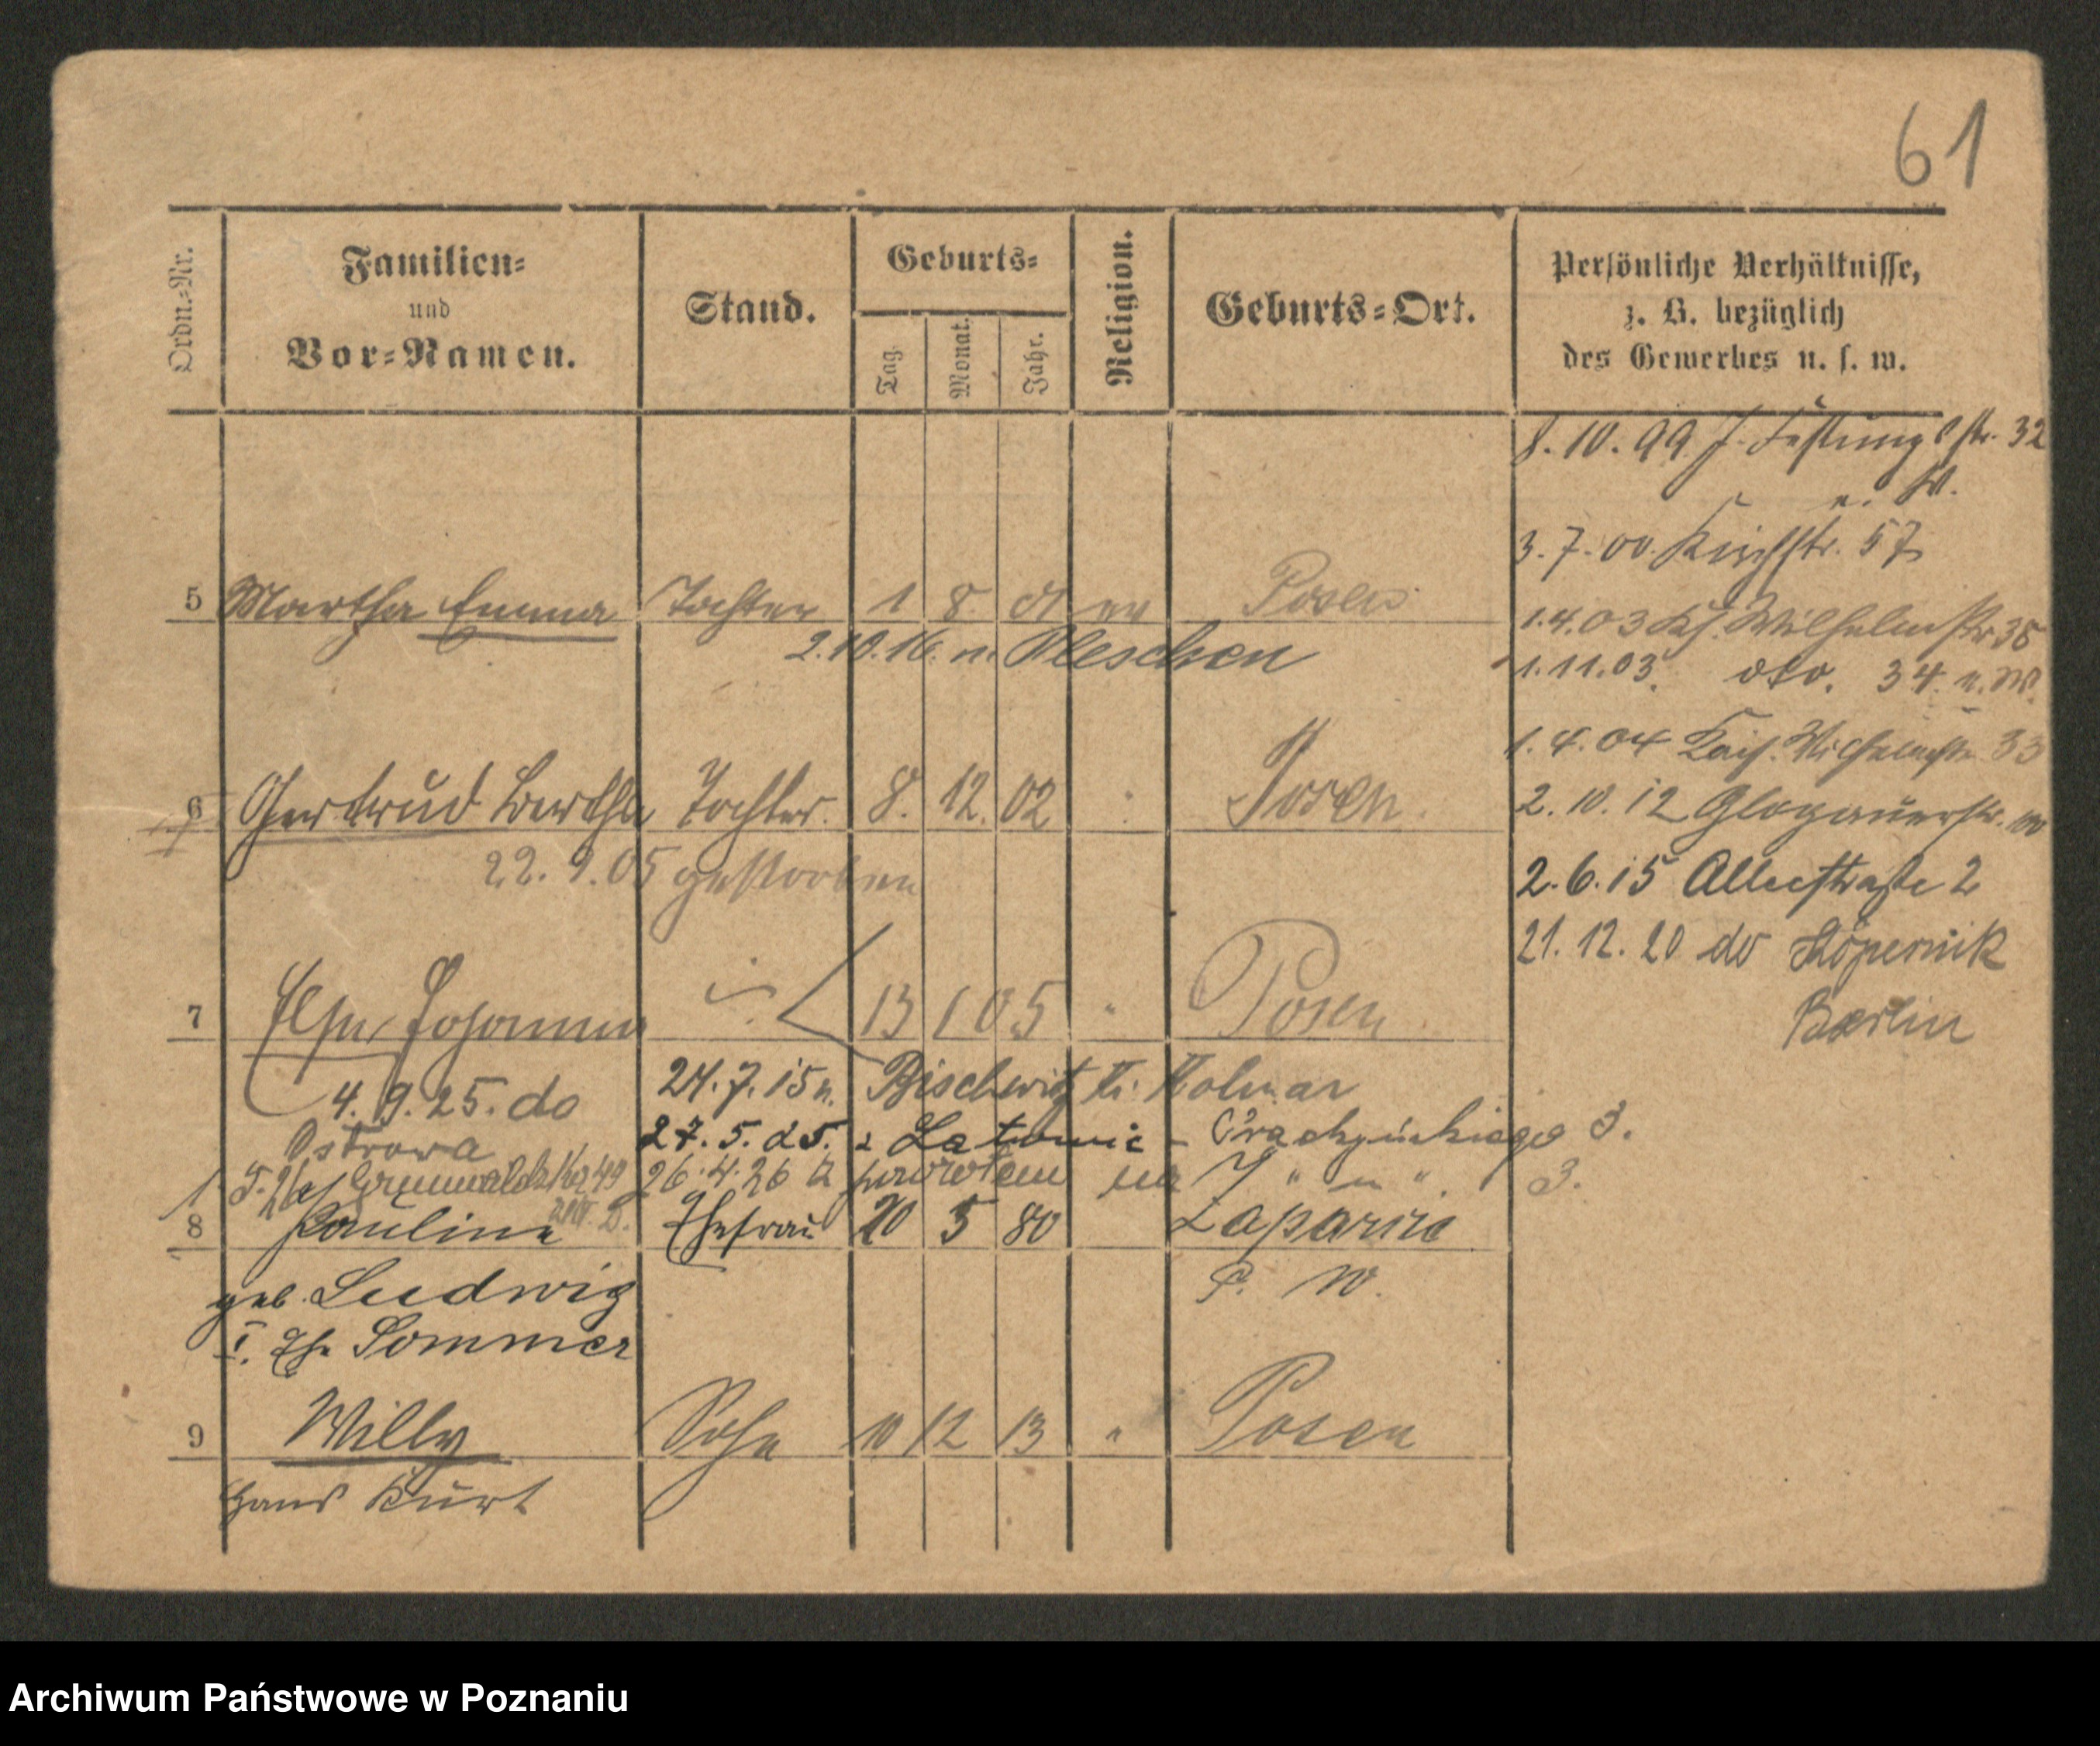 61
Ordn.-Nr.
Familien-
und
Vor-Namen.
Stand.
Geburts-
Tag.
Monat.
Jahr.
Religion.
Geburts-Ort.
Persönliche Verhältnisse,
z. B. bezüglich
des Gewerbes u. s. w.
8.10.99 J. Festungsstr. 32
n. W.
3.7.00. Kirchstr. 57
5 Martha Emma Tochter 1 8 01 ev Posen
2.10.16. n. Pleschen
1.4.03 Ks. Wilhelmstr 38
1.11.03. dto. 34. n. W.
1.4.04 Kais. Wilhelmstr. 33
6 Gertrud Bertha Tochter. 8. 12. 02 Posen.
22.9.05 gestorben
2.10.12 Glogauerstr. 100
2.6.15 Alleestraße 2
21.12.20 do Köpernik
Berlin
7 Else Johanna 13 1 05 " Posen
4.9.25. do
Ostrowa
24.7.15 n. Bischwitz Kr. Kolmar
27.5.25. z Latowic - 3.
26.4.26 z powrotem na " " 3.
Grunwaldzka 49
8 Pauline Ehefrau 20 5 80
geb. Ludwig
I. Ehe Sommer
P. W.
9 Willy Sohn 10 12 13 " Posen
Hans Kurt
Archiwum Państwowe w Poznaniu